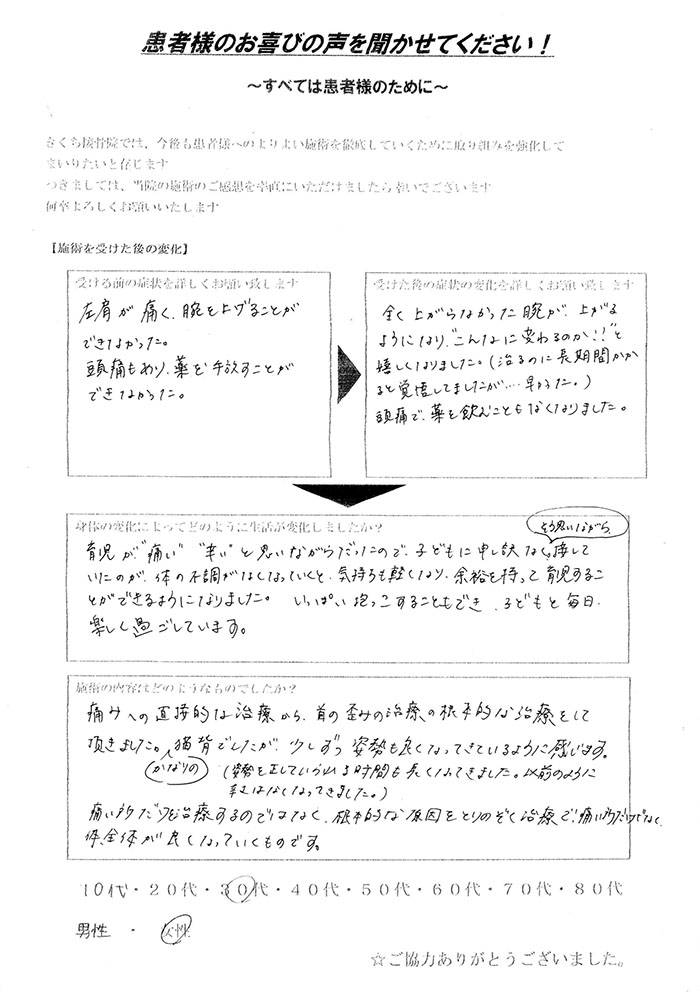 患者様のお喜びの声を聞かせてください！
～すべては患者様のために～
きくち接骨院では、今後も患者様へのよりよい施術を徹底していくために取り組みを強化して
まいりたいと存じます
つきましては、当院の施術のご感想を率直にいただけましたら幸いでございます
何卒よろしくお願いいたします
【施術を受けた後の変化】
受ける前の症状を詳しくお願い致します
左肩が痛く、腕を上げることが
できなかった。
頭痛もあり、薬を手放すことが
できなかった。
受けた後の症状の変化を詳しくお願い致します
全く上がらなかった腕が、上がる
ようになり、"こんなに変わるのか!!"と
嬉しくなりました。(治るのに長期間かか
ると覚悟してましたが…早かった。)
頭痛で、薬を飲むこともなくなりました。
身体の変化によってどのように生活が変化しましたか？
そう思いながら
育児が"痛い" "辛い"と思いながらだったので、子どもに申し訳なく接して
いたのが、体の不調がなくなっていくと、気持ちも軽くなり、余裕を持って育児するこ
とができるようになりました。 いっぱい抱っこすることもでき、子どもと毎日、
楽しく過ごしています。
施術の内容はどのようなものでしたか？
痛みへの直接的な治療から、首の歪みの治療の根本的な治療をして
頂きました。猫背でしたが、少しずつ姿勢も良くなってきているように感じます。
かなりの
(姿勢を正していられる時間も長くなってきました。以前のように
辛くはなくなってきました。)
痛い所だけを治療するのではなく、根本的な原因をとりのぞく治療で、痛い所だけでなく、
体全体が良くなっていくものです。
10代・20代・30代・40代・50代・60代・70代・80代
男性 ・ 女性
☆ご協力ありがとうございました。